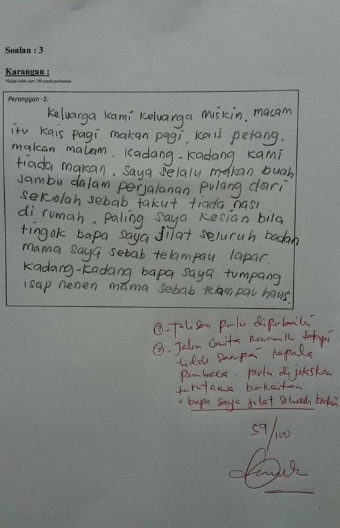 Soalan : 3
Karangan :
*Tidak lebih dari 100 patah perkataan
Perenggan -1:
Keluarga kami keluarga miskin. macam
itu kais pagi makan pagi, kais petang.
makan malam. Kadang-kadang kami
tiada makan. Saya selalu makan buah
jambu dalam perjalanan pulang dari
sekolah sebab takut tiada nasi
di rumah. paling saya kesian bila
tingok bapa saya jilat seluruh badan
mama saya sebab telampau lapar.
Kadang-kadang bapa saya tumpang
isap nenen mama sebab telampau haus.
- Tulisan perlu diperbaiki
- Jalan cerita menarik tetapi
tidak sampai kepada
pembaca - perlu dijelaskan
terutama berkaitan
" bapa saya jilat seluruh badan
59/100